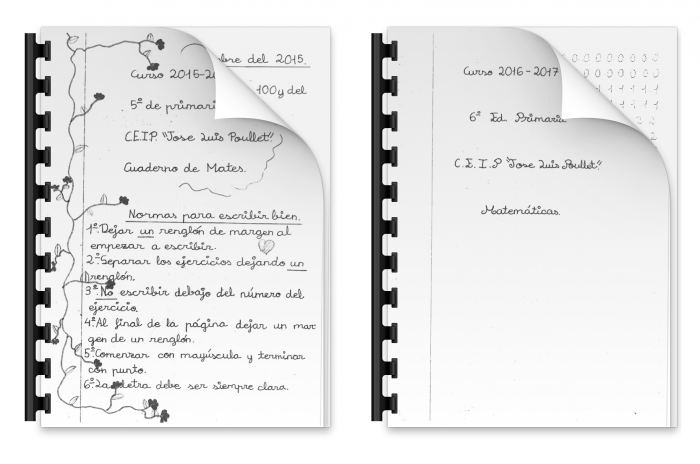 bre del 2015.
Curso 2015-20
100 y del
5º de primari
C.E.I.P. "Jose Luis Poullet".
Cuaderno de Mates.
Normas para escribir bien.
1ª: Dejar un renglón de margen al
empezar a escribir.
2ª: Separar los ejercicios dejando un
renglón.
3ª: No escribir debajo del número del
ejercicio.
4ª: Al final de la página dejar un mar
gen de un renglón.
5ª: Comenzar con mayúscula y terminar
con punto.
6ª: La letra debe ser siempre clara.
Curso 2016-2017
6º Ed. Primaria
C.E.I.P "Jose Luis Poullet".
Matemáticas.